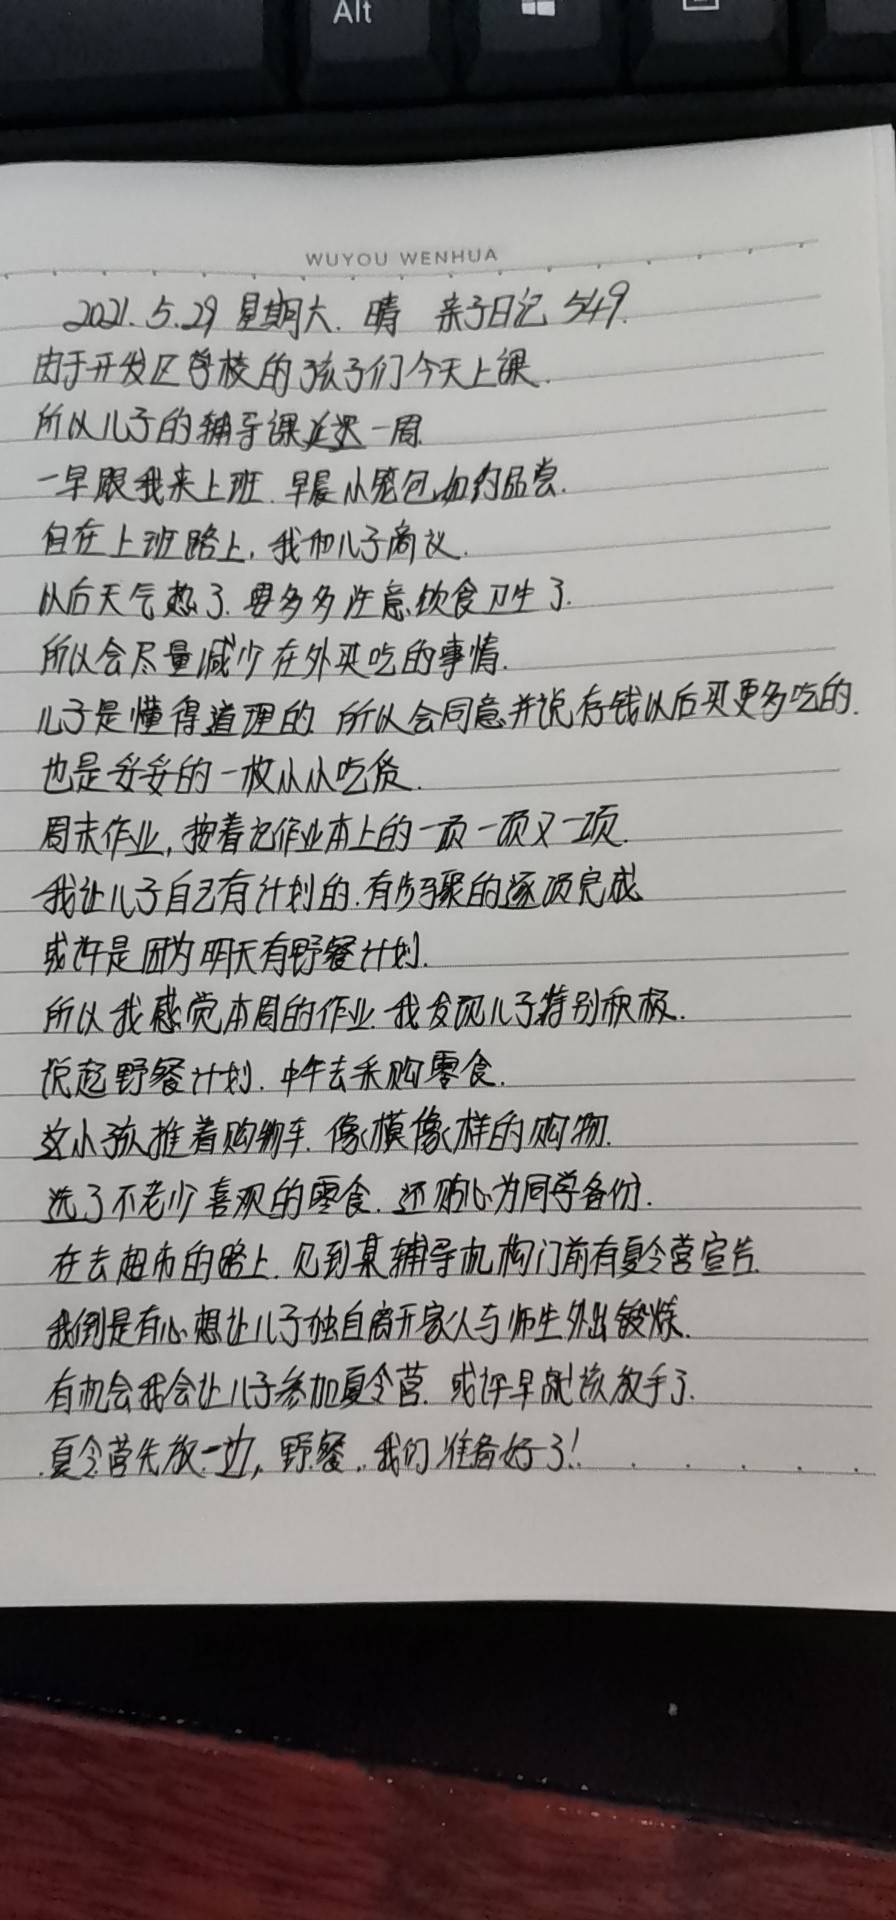 Alt
WUYOU WENHUA
2021.5.29 星期六. 晴 亲子日记 549.
由于开发区学校的孩子们今天上课.
所以儿子的辅导课延迟一周
一早跟我来上班.早晨小笼包如约品尝.
但在上班路上,我和儿子商议.
以后天气热了.要多多注意饮食卫生了.
所以会尽量减少在外买吃的事情.
儿子是懂得道理的.所以会同意并说存钱以后买更多吃的.
也是妥妥的一枚小小吃货.
周末作业,按着记作业本上的一项一项又一项.
我让儿子自己有计划的.有步骤的逐项完成
或许是因为明天有野餐计划.
所以我感觉本周的作业.我发现儿子特别积极.
说起野餐计划.中午去采购零食.
这小孩推着购物车.像模像样的购物.
选了不老少喜欢的零食.还贴心为同学备份.
在去超市的路上.见到某辅导机构门前有夏令营宣传
我倒是有心想让儿子独自离开家人与师生外出锻炼.
有机会我会让儿子参加夏令营.或许早就该放手了.
夏令营先放一边,野餐.我们准备好了!